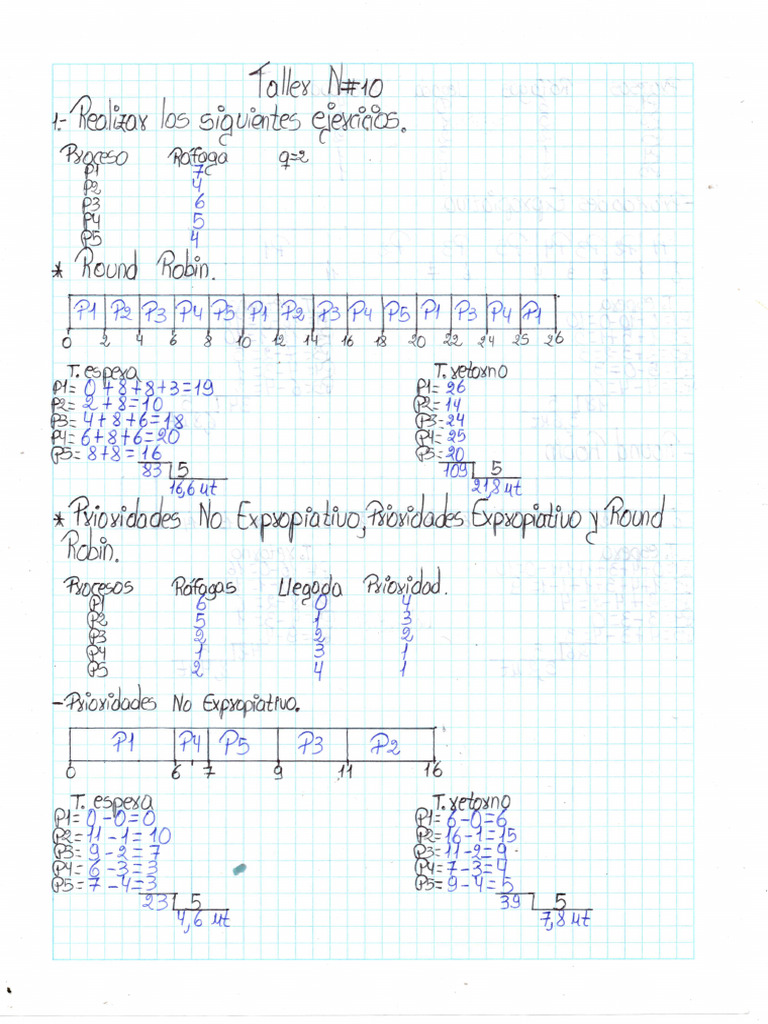 Taller N#10
1.- Realizar los siguientes ejercicios.
Proceso Ráfaga q=2
P1 7
P2 4
P3 6
P4 5
P5 4
* Round Robin.
P1 P2 P3 P4 P5 P1 P2 P3 P4 P5 P1 P3 P4 P1
0 2 4 6 8 10 12 14 16 18 20 22 24 25 26
T. espera T. retorno
P1= 0+8+8+3=19 P1= 26
P2= 2+8=10 P2= 14
P3= 4+8+6=18 P3= 24
P4= 6+8+6=20 P4= 25
P5= 8+8=16 P5= 20
83 5 109 5
16,6 ut 21,8 ut
* Prioridades No Expropiativo, Prioridades Expropiativo y Round
Robin.
Procesos Ráfagas Llegada Prioridad.
P1 6 0 4
P2 5 1 3
P3 2 2 2
P4 1 3 1
P5 2 4 1
- Prioridades No Expropiativo.
P1 P4 P5 P3 P2
0 6 7 9 11 16
T. espera T. retorno
P1= 0-0=0 P1= 6-0=6
P2= 11-1=10 P2= 16-1=15
P3= 9-2=7 P3= 11-2=9
P4= 6-3=3 P4= 7-3=4
P5= 7-4=3 P5= 9-4=5
23 5 39 5
4,6 ut 7,8 ut